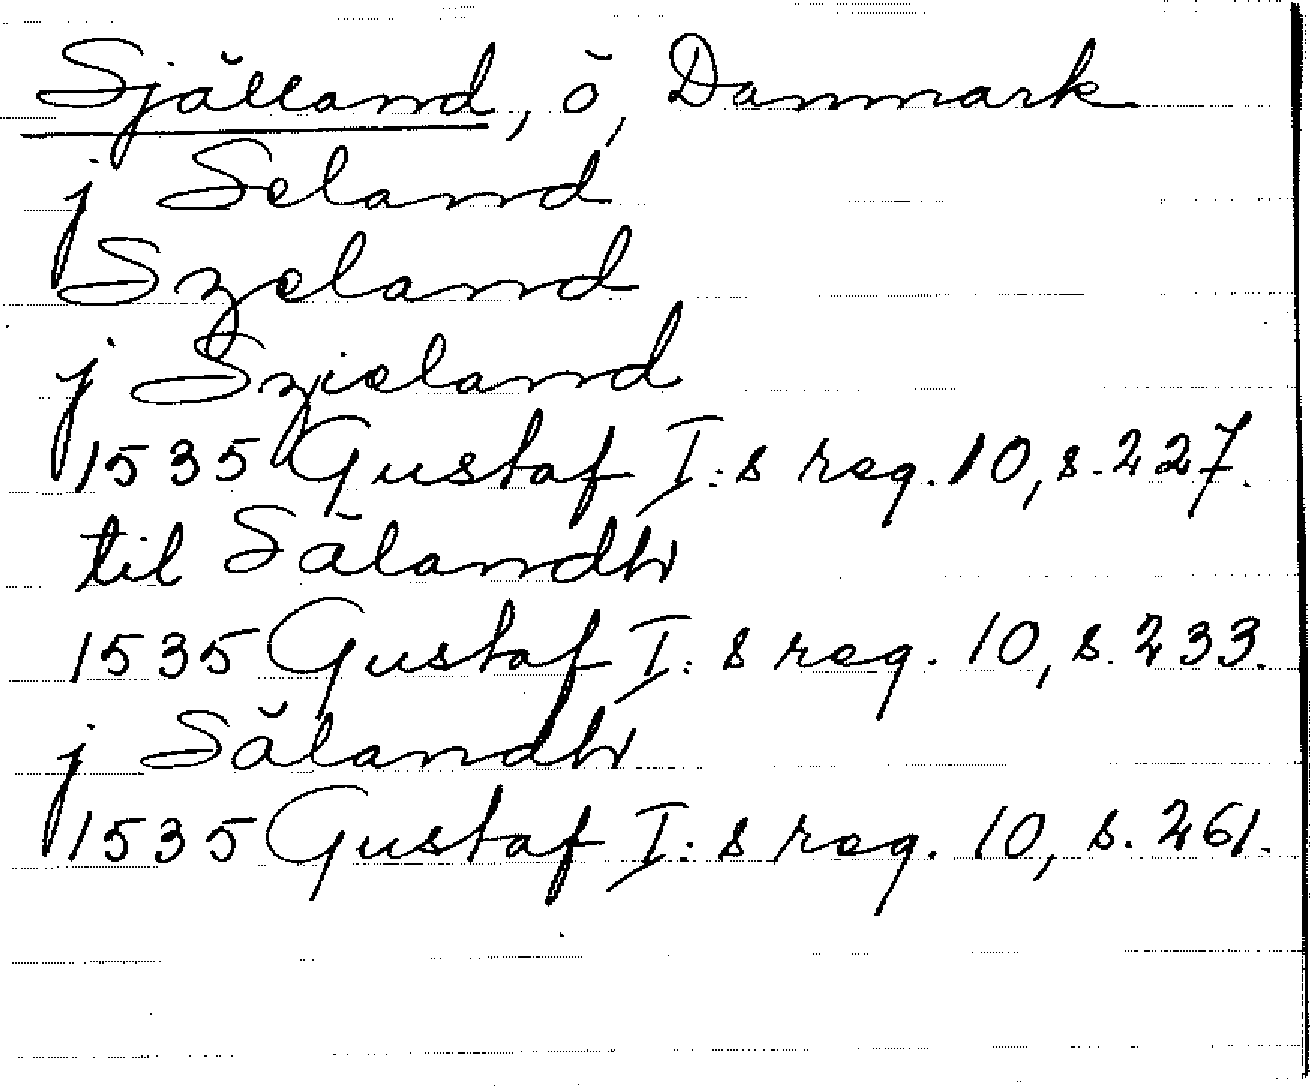 Själland, ö, Danmark
j Seland
Szeland
j Szieland
1535 Gustaf I:s reg. 10, s. 227.
til Sälandh
1535 Gustaf I:s reg. 10, s. 233.
j Sälandh
1535 Gustaf I:s reg. 10, s. 261.